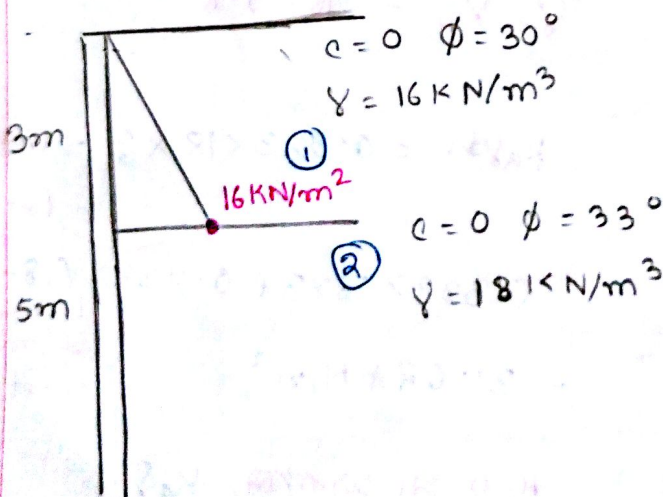 c = 0 ϕ = 30°
γ = 16 KN/m³
3m
①
16KN/m²
c = 0 ϕ = 33°
②
γ = 18 KN/m³
5m